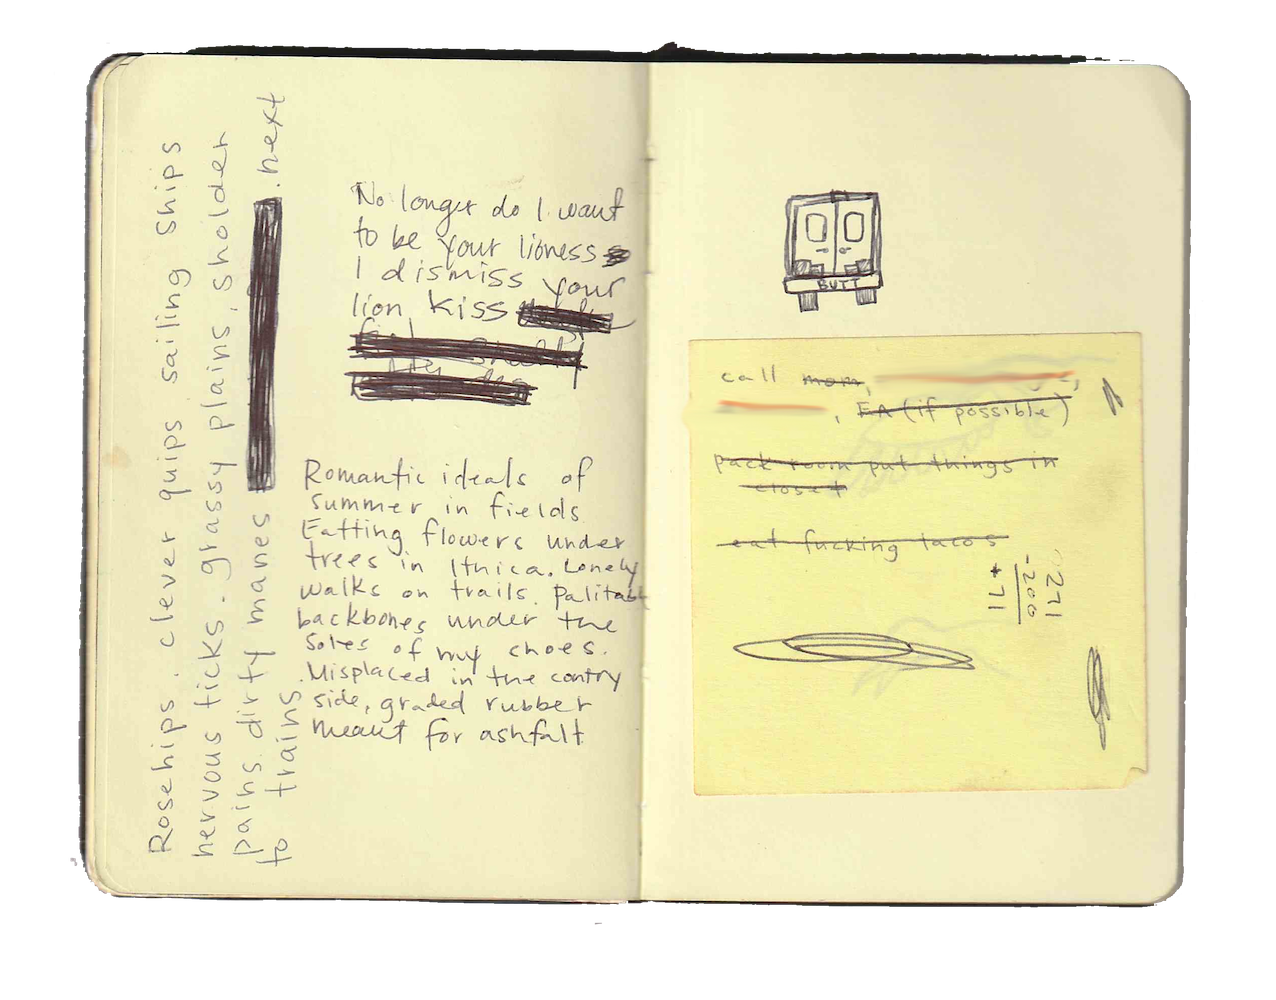 Rosehips. clever quips sailing ships
nervous ticks. grassy plains, sholder
pains. dirty manes .next
to trains
No longer do I want
to be your lioness
I dismiss your
lion kiss
Romantic ideals of
summer in fields
Eatting flowers under
trees in Ithica. Lonely
walks on trails. palitabl
backbones under the
soles of my shoes.
Misplaced in the contry
side, graded rubber
meant for ashfalt
BUTT
call mom,
, EA (if possible)
pack room put things in
closet
eat fucking tacos
271
-200
+71